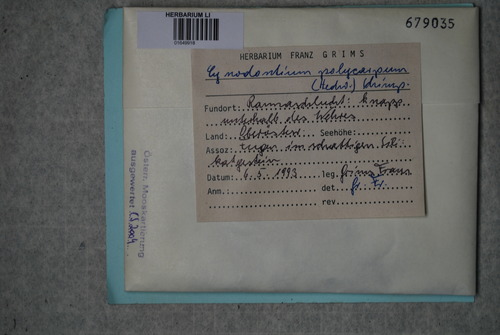 HERBARIUM LI
679035
HERBARIUM FRANZ GRIMS
Cynodontium polycarpum
(Hedw.) Schimp.
Fundort: Rannaschlucht: knapp
unterhalb des Wehres
Land: Oberösterr. Seehöhe:
Assoz: Fugen im schattigen Sili-
katgestein
Datum: 6.5.1993 leg. Grims Franz
Anm.: det. Gr. Fr.
rev.
Österr. Mooskartierung
ausgewertet CS 2004